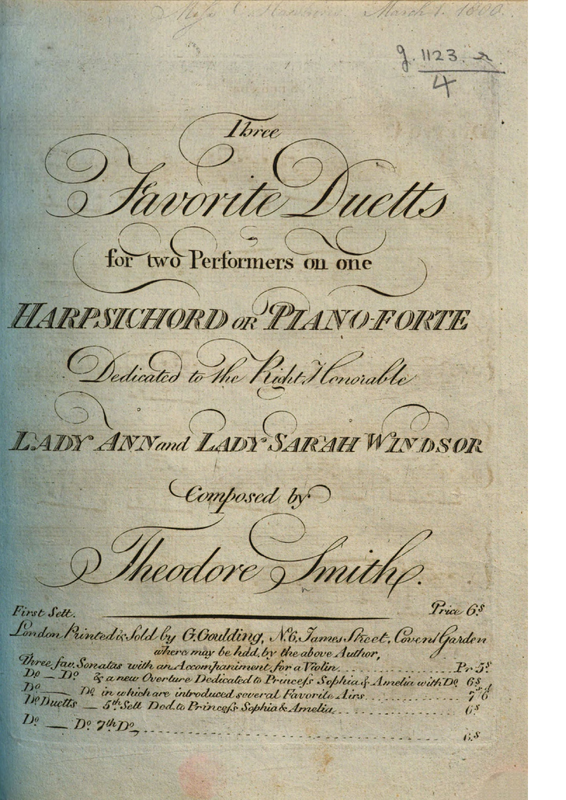 March 1. 1800.
g. 1123. r
4
Three
Favorite Duetts
for two Performers on one
HARPSICHORD OR PIANO-FORTE
Dedicated to the Right Honorable
LADY ANN and LADY SARAH WINDSOR
Composed by
Theodore Smith.
First Sett. Price 6s
London Printed & Sold by G. Goulding, No. 6, James Street, Covent Garden
where may be had, by the above Author,
Three fav. Sonatas with an Accompaniment, for a Violin Pr. 5s
Do — Do & a new Overture Dedicated to Princess Sophia & Amelia with Do 6s
Do — Do in which are introduced several Favorite Airs 7s 6d
Do Duetts — 5th Sett Ded. to Princess Sophia & Amelia 6s
Do — Do 7th Do 6s